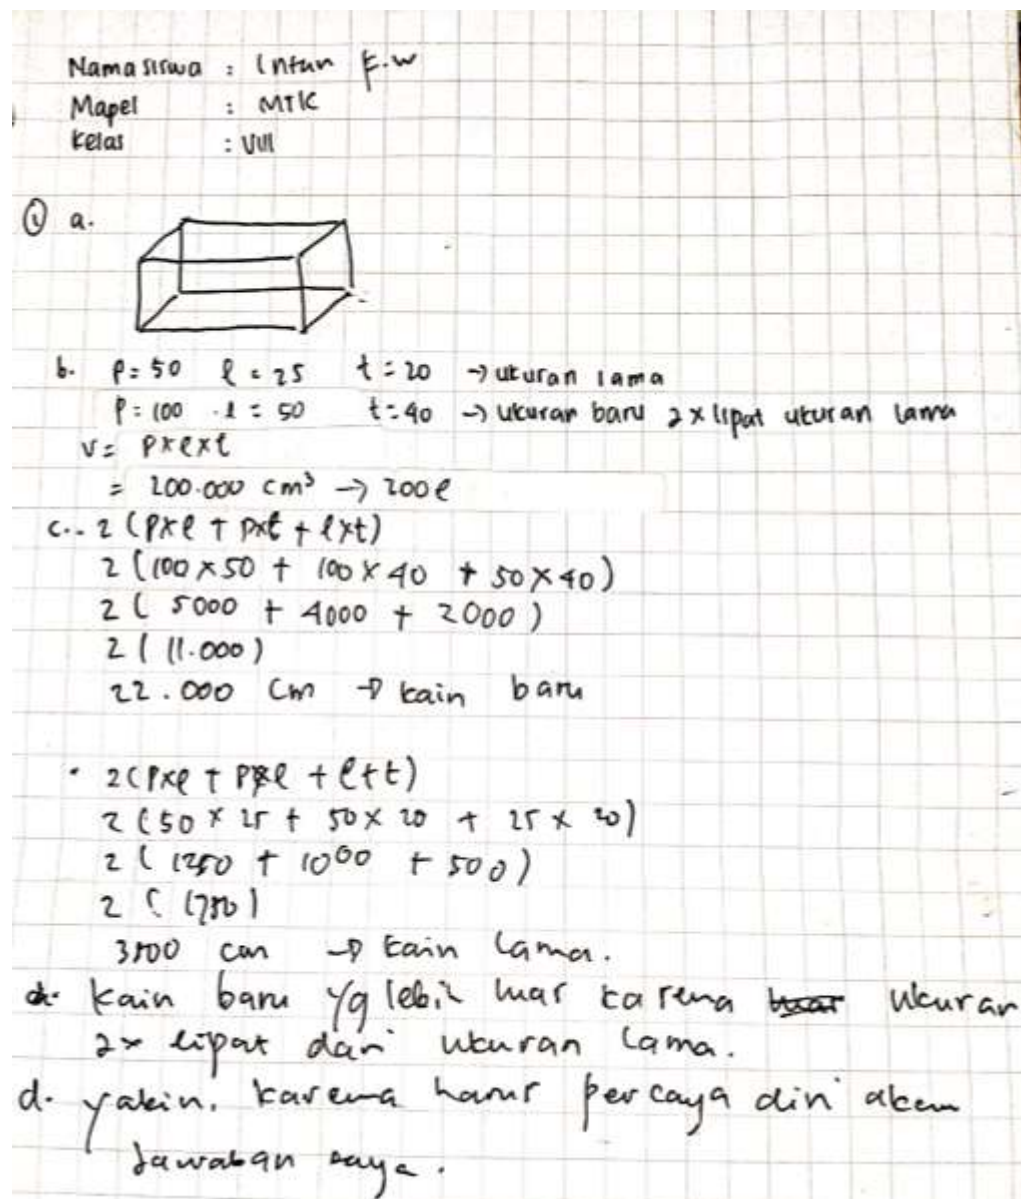 Nama siswa : Intan F.w
Mapel : MTK
Kelas : VIII
① a.
b. p = 50 l = 25 t = 20 → ukuran lama
p = 100 l = 50 t = 40 → ukuran baru 2x lipat ukuran lama
v = p x l x t
= 200.000 cm³ → 200 l
c. 2 (p x l + p x t + l x t)
2 (100 x 50 + 100 x 40 + 50 x 40)
2 ( 5000 + 4000 + 2000 )
2 ( 11.000)
22.000 cm → kain baru
• 2(p x l + p x l + l + t)
2 (50 x 25 + 50 x 20 + 25 x 20)
2 ( 1250 + 1000 + 500 )
2 ( 1750 )
3500 cm → kain lama.
d. kain baru yg lebih luas karena ukuran
2x lipat dari ukuran lama.
d. yakin, karena harus percaya diri akan
Jawaban saya.